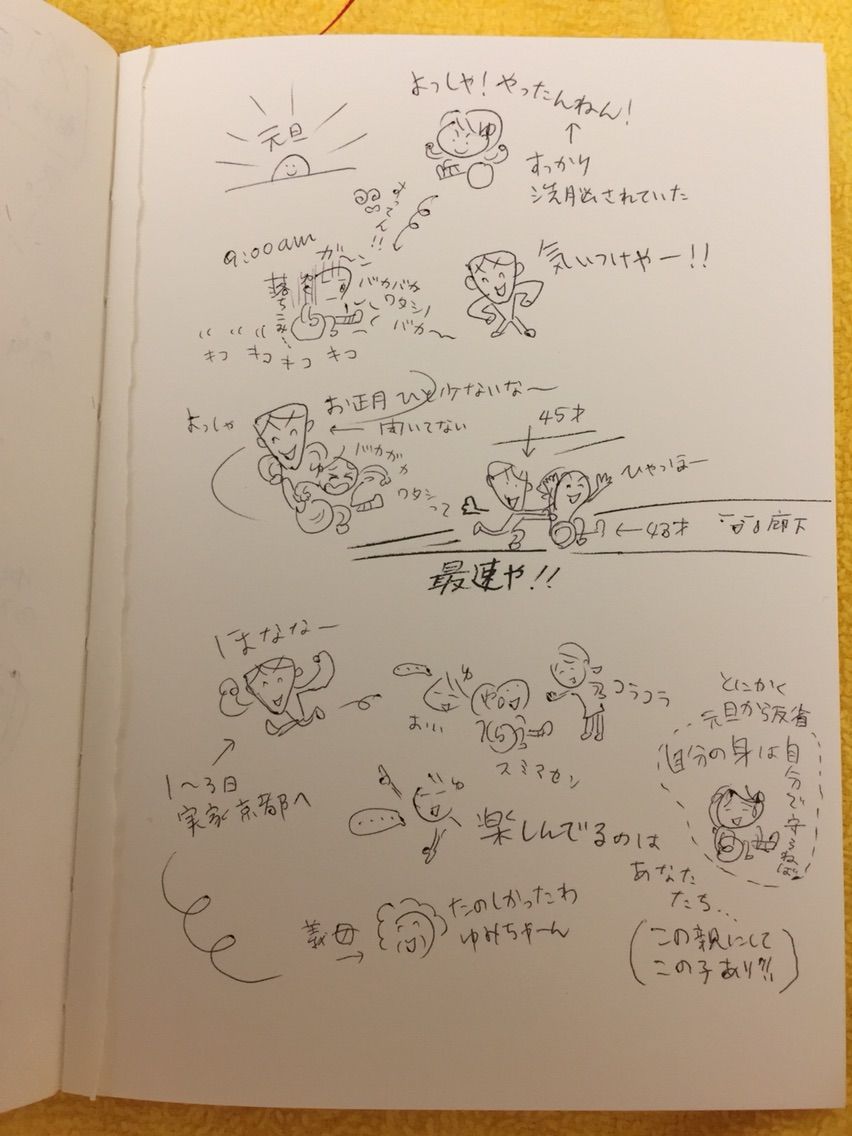 元旦
よっしゃ!やったんねん!
ゆ
↑
すっかり
洗脳されていた
まってん!!
9:00am
ガーン
落ちこみ…
バカバカ
ワタシノ
バカ〜
キコ キコ キコ キコ
気いつけやー!!
よっしゃ
お正月ひと少ないな〜
← 聞いてない
バカバカ
ワタシって
45才
ひゃっほー
←43才
廊下
最速や!!
ほななー
1〜3日
実家京都へ
……
ゆ
おいい
コラコラ
スミマセン
とにかく
元旦から反省
自分の身は自分で守らねば!
……
ゆ
楽しんでるのは
あなた
たち…
義母→
たのしかったわ
ゆみちゃーん
(この親にして
この子あり?!)